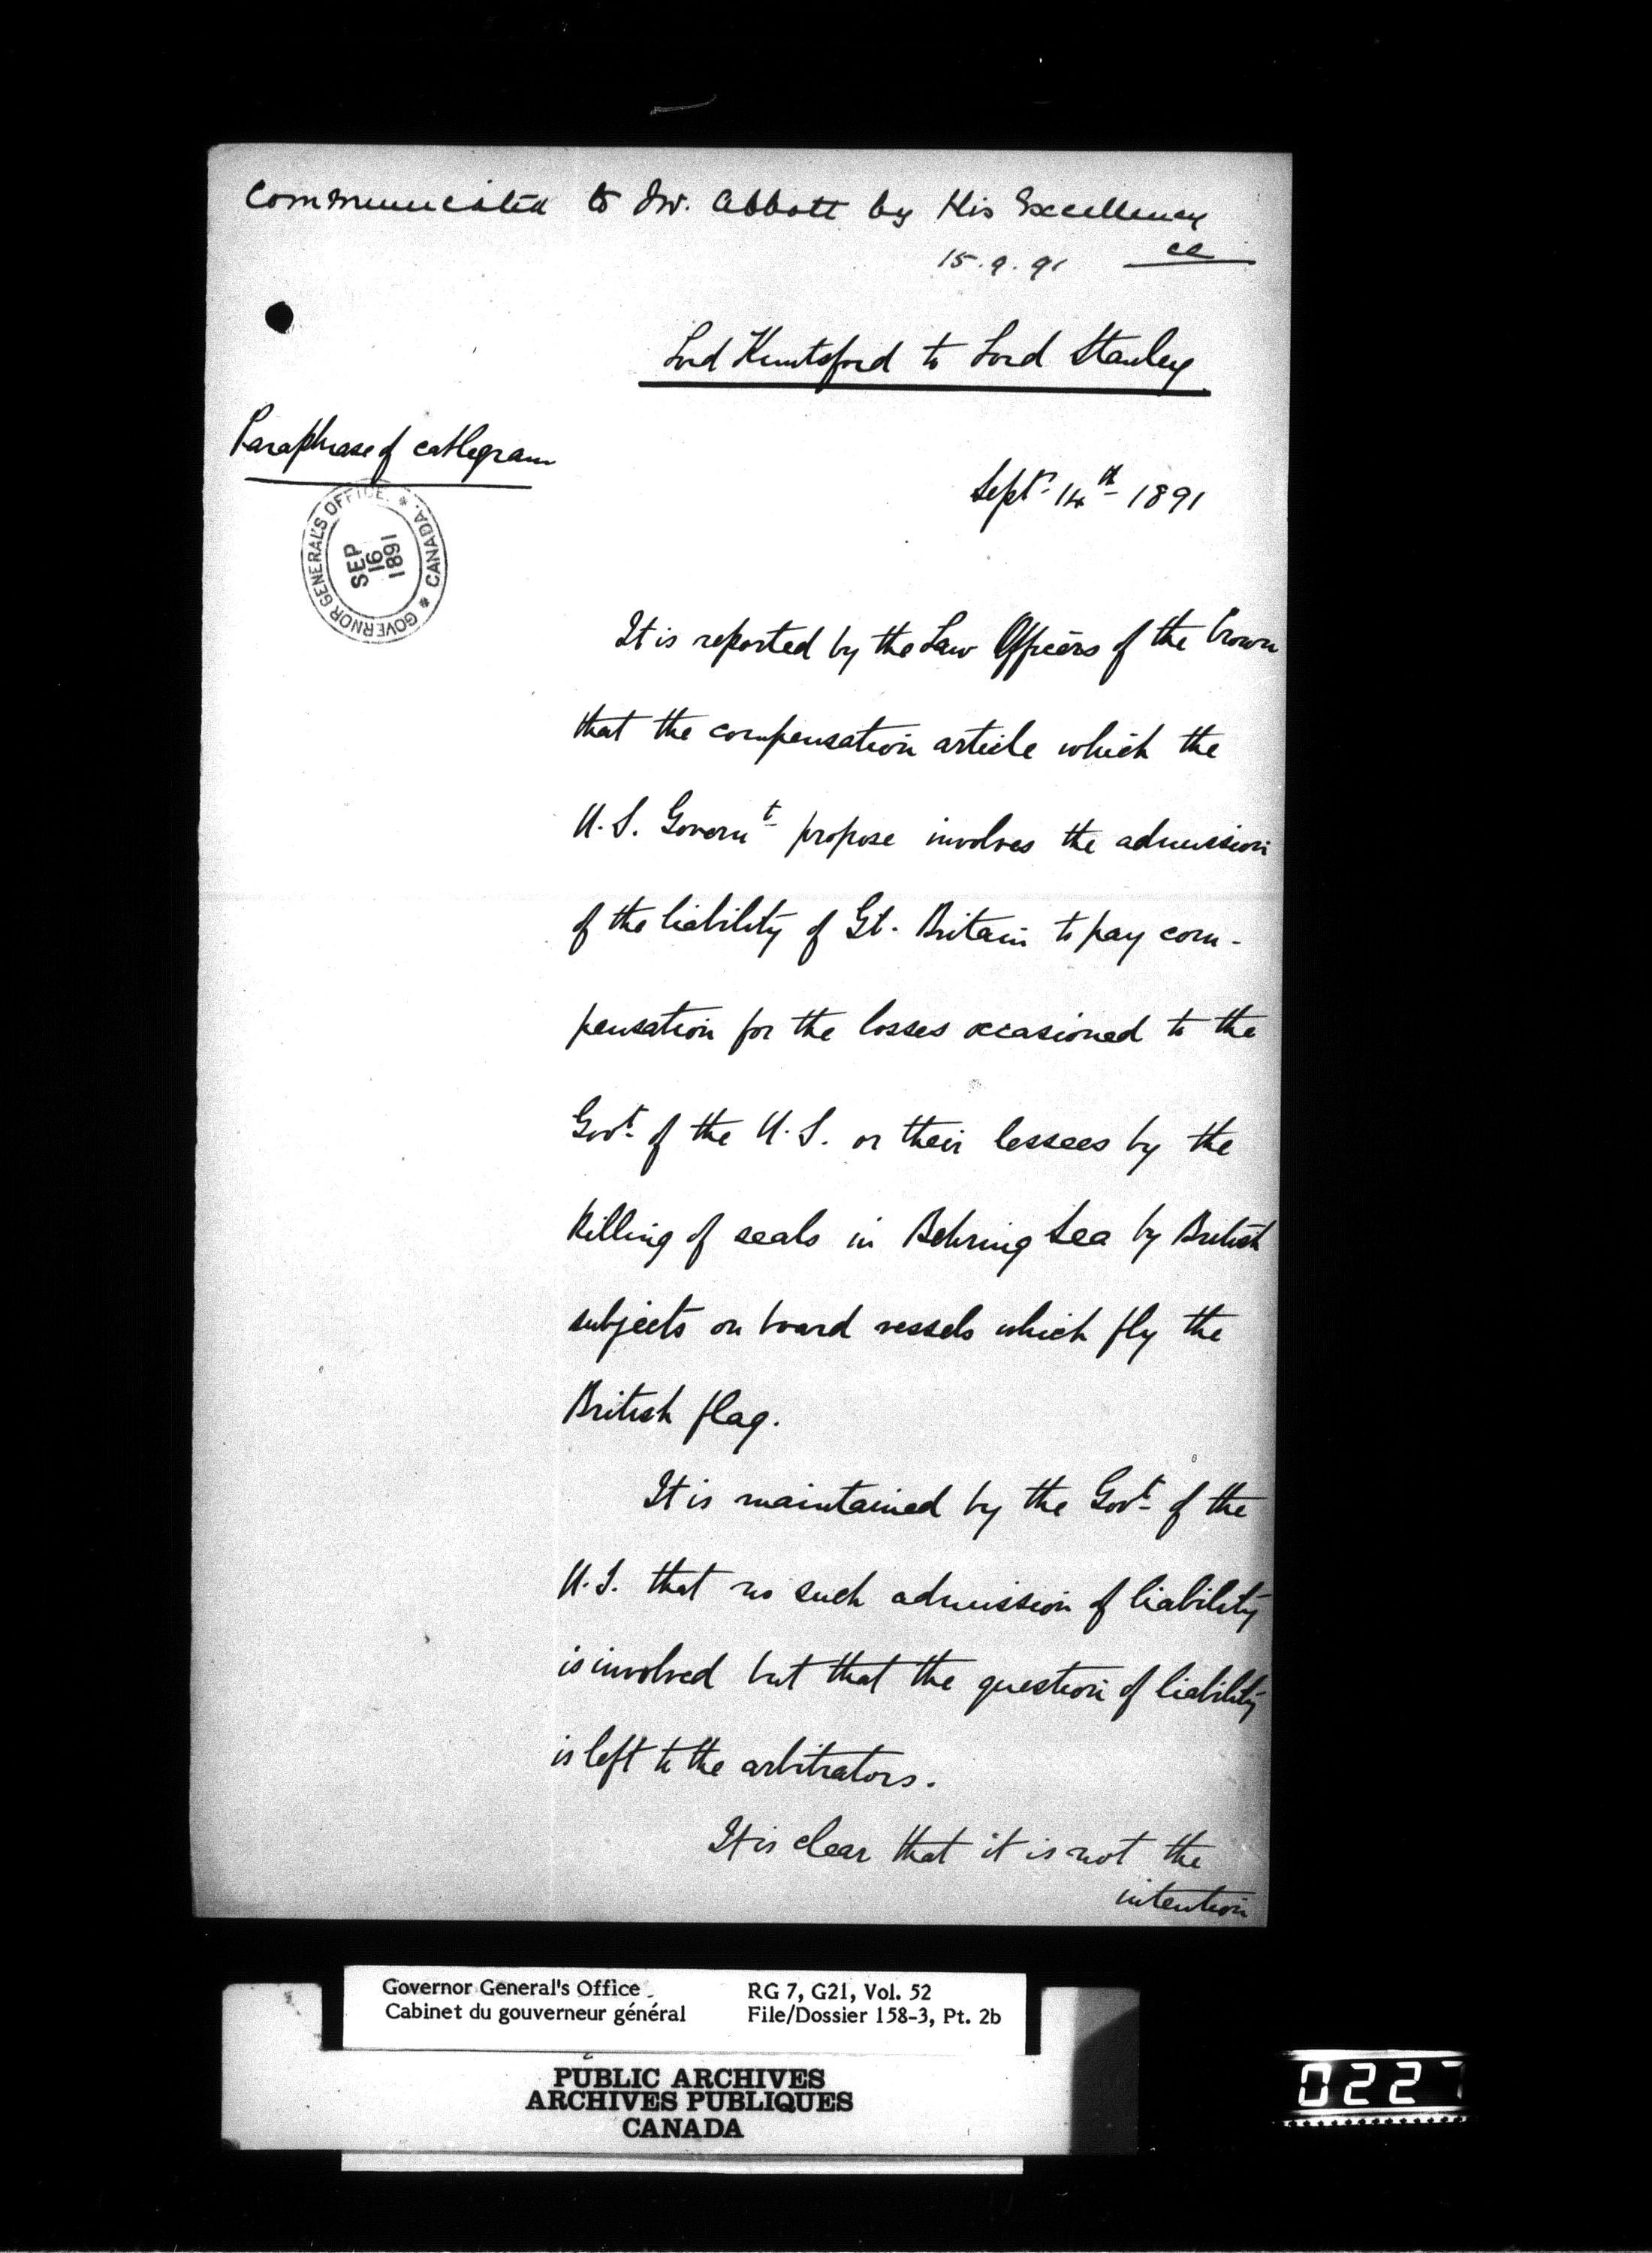 Communicated to Mr. Abbott by His Excellency
15.9.91
Lord Knutsford to Lord Stanley
Paraphrase of cablegram
Septr. 14th 1891
GOVERNOR GENERAL'S OFFICE. * CANADA. *
SEP
16
1891
It is reported by the Law Officers of the Crown
that the compensation article which the
U.S. Governt propose involves the admission
of the liability of Gt. Britain to pay com-
pensation for the losses occasioned to the
Govt. of the U.S. or their lessees by the
killing of seals in Behring Sea by British
subjects on board vessels which fly the
British flag.
It is maintained by the Govt. of the
U.S. that no such admission of liability
is involved but that the question of liability
is left to the arbitrators.
It is clear that it is not the
intention
Governor General's Office RG 7, G21, Vol. 52
Cabinet du gouverneur général File/Dossier 158-3, Pt. 2b
PUBLIC ARCHIVES
ARCHIVES PUBLIQUES
CANADA
0227